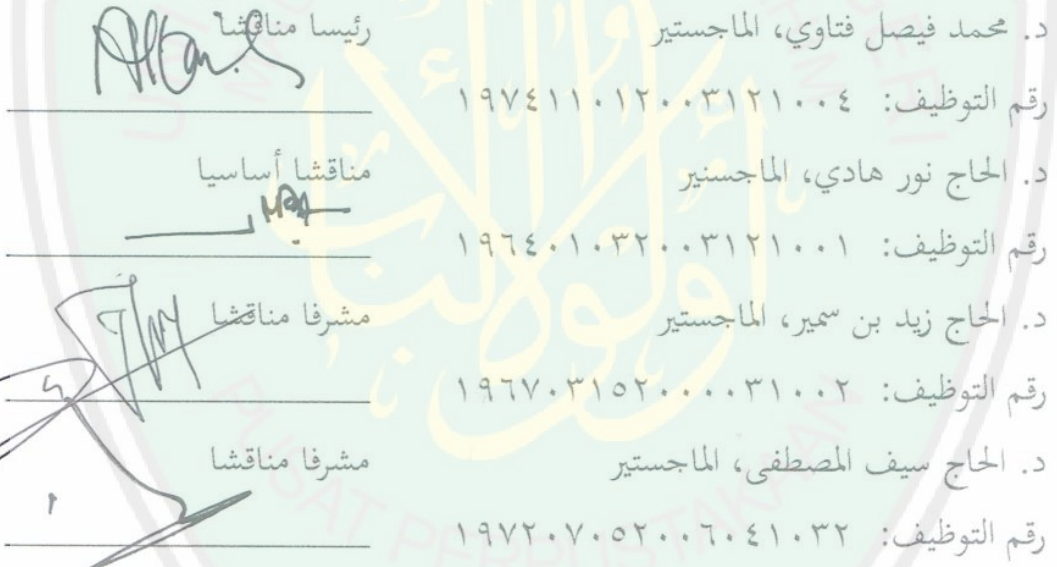 د. محمد فيصل فتاوي، الماجستير رئيسا مناقشا
رقم التوظيف: ١٩٧٤١١٠١٢٠٠٣١٢١٠٠٤
د. الحاج نور هادي، الماجسنير مناقشا أساسيا
رقم التوظيف: ١٩٦٤٠١٠٣٢٠٠٣١٢١٠٠١
د. الحاج زيد بن سمير، الماجستير مشرفا مناقشا
رقم التوظيف: ١٩٦٧٠٣١٥٢٠٠٠٠٣١٠٠٢
د. الحاج سيف المصطفى، الماجستير مشرفا مناقشا
رقم التوظيف: ١٩٧٢٠٧٠٥٢٠٠٦٠٤١٠٣٢
PUSAT PERPUSTAKAAN